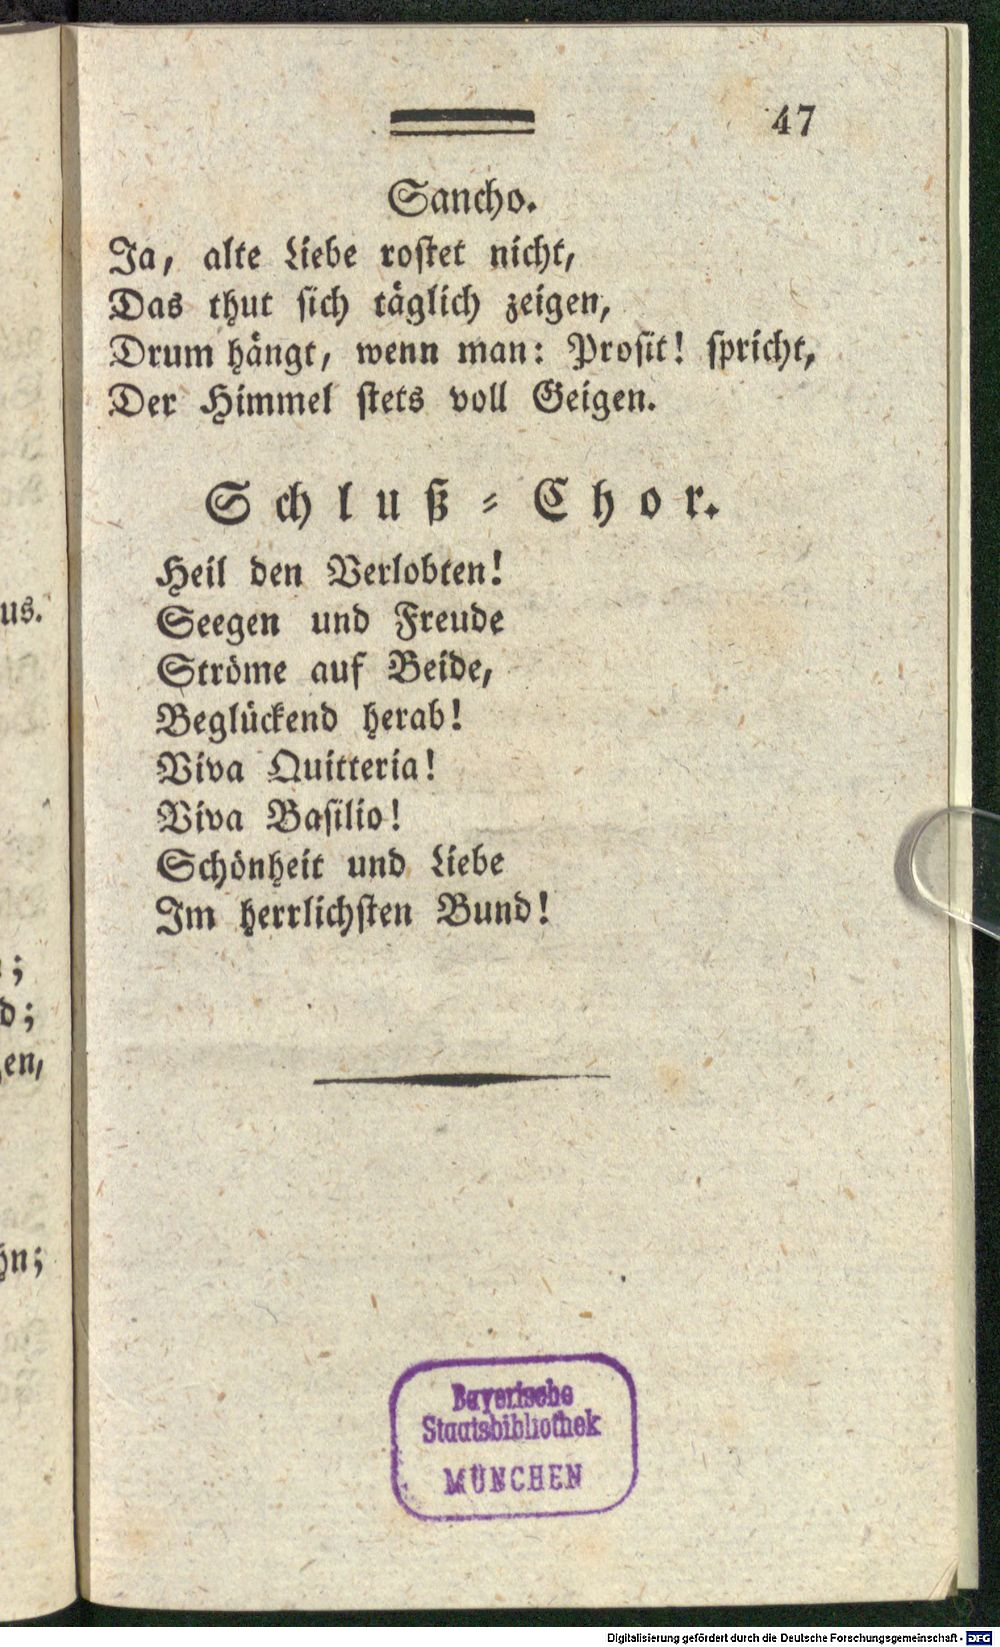 47
Sancho.
Ja, alte Liebe rostet nicht,
Das thut sich täglich zeigen,
Drum hängt, wenn man: Prosit! spricht,
Der Himmel stets voll Geigen.
Schluß-Chor.
Heil den Verlobten!
Seegen und Freude
Ströme auf Beide,
Beglückend herab!
Viva Quitteria!
Viva Basilio!
Schönheit und Liebe
Im herrlichsten Bund!
us.
;
d;
en,
hn;
Bayerische
Staatsbibliothek
MÜNCHEN
Digitalisierung gefördert durch die Deutsche Forschungsgemeinschaft - DFG